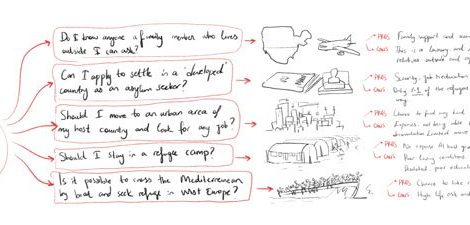 Do I know anyone a family member who lives
outside I can ask?
PROS Family support and
CONS This is a luxury and
relatives outside and
Can I apply to settle in a 'developed'
country as an asylum seeker?
PROS Security, job & education
CONS Only of the refugees
way
Should I move to an urban area of
my host country and look for any job?
PROS Chance to find
CONS Expenses, not being able
Should I stay in a refugee camp?
PROS No expense
CONS Poor living conditions
Isolated, poor
Is it possible to cross the Mediterranean
by boat and seek refuge in West Europe?
PROS Chance to
CONS High life risk and